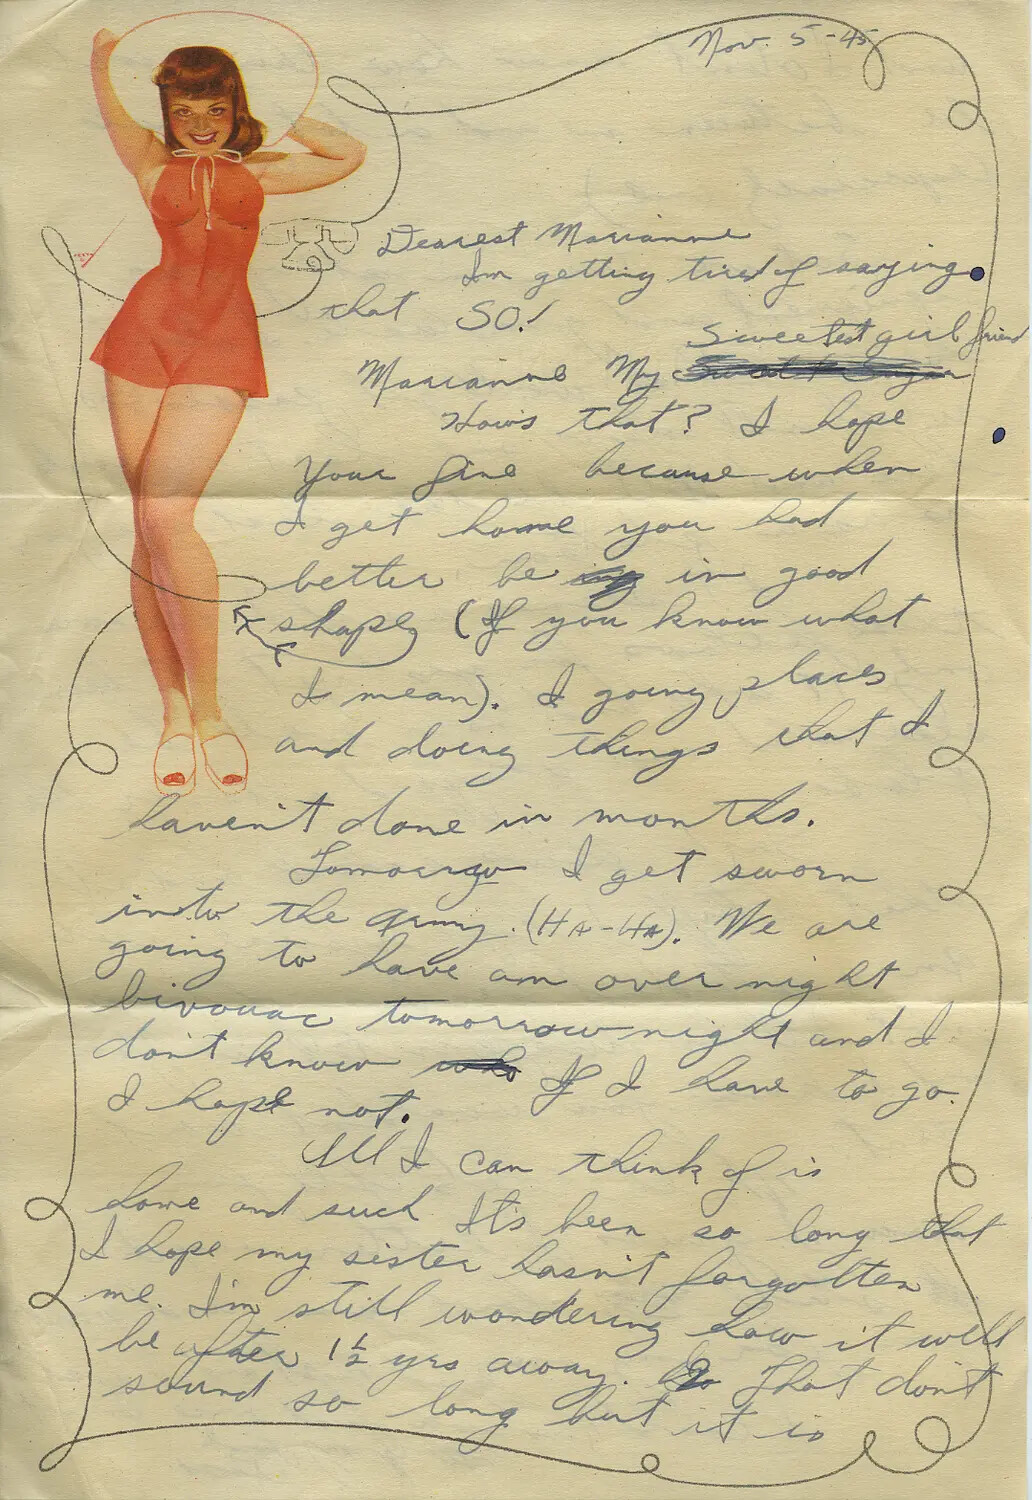 Nov. 5-45
Dearest Marianne
Im getting tired of saying
that SO!
Sweetest girl friend
Marianne My Sweet Sugar
How's that? I hope
Your fine because when
I get home you had
better be in good
shape (If you know what
I mean). I going places
and doing things that I
haven't done in months.
Tomorrow I get sworn
into the army. (HA-HA). We are
going to have an over night
bivouac tomorrow night and I
don't know who If I have to go.
I hope not.
All I can think of is
home and such It's been so long that
I hope my sister hasn't forgotten
me. I'm still wondering how it will
be after 1½ yrs away. That don't
sound so long but it is